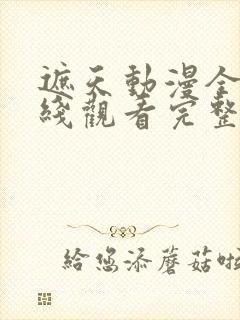 遮天動漫全
綫觀看完整
給您添蘑菇啦